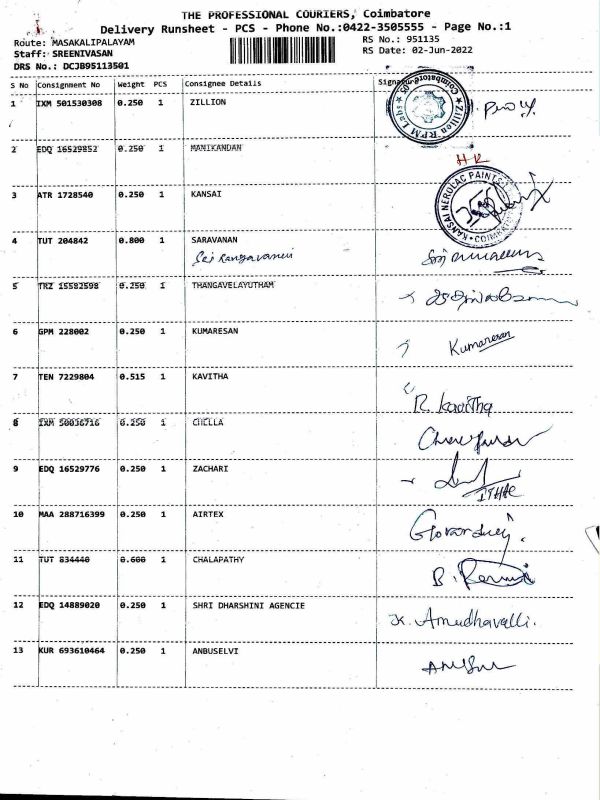 THE PROFESSIONAL COURIERS, Coimbatore
Delivery Runsheet - PCS - Phone No.:0422-3505555 - Page No.:1
Route: MASAKALIPALAYAM
RS No.: 951135
Staff: SREENIVASAN
RS Date: 02-Jun-2022
DRS No.: DCJB95113501
S No Consignment No Weight PCS Consignee Details
1 IXM 501530308 0.250 1 ZILLION
2 EDQ 16529852 0.250 1 MANIKANDAN
HR
3 ATR 1728540 0.250 1 KANSAI
KANSAI NEROLAC PAINTS
4 TUT 204842 0.800 1 SARAVANAN
5 TRZ 15582598 0.250 1 THANGAVELAYUTHAM
6 GPM 228002 0.250 1 KUMARESAN Kumaresan
7 TEN 7229804 0.515 1 KAVITHA
R. Kavitha
8 IXM 50036716 0.250 1 CHELLA
9 EDQ 16529776 0.250 1 ZACHARI
10 MAA 288716399 0.250 1 AIRTEX
11 TUT 834440 0.600 1 CHALAPATHY
12 EDQ 14889020 0.250 1 SHRI DHARSHINI AGENCIE
K. Amudhavalli.
13 KUR 693610464 0.250 1 ANBUSELVI